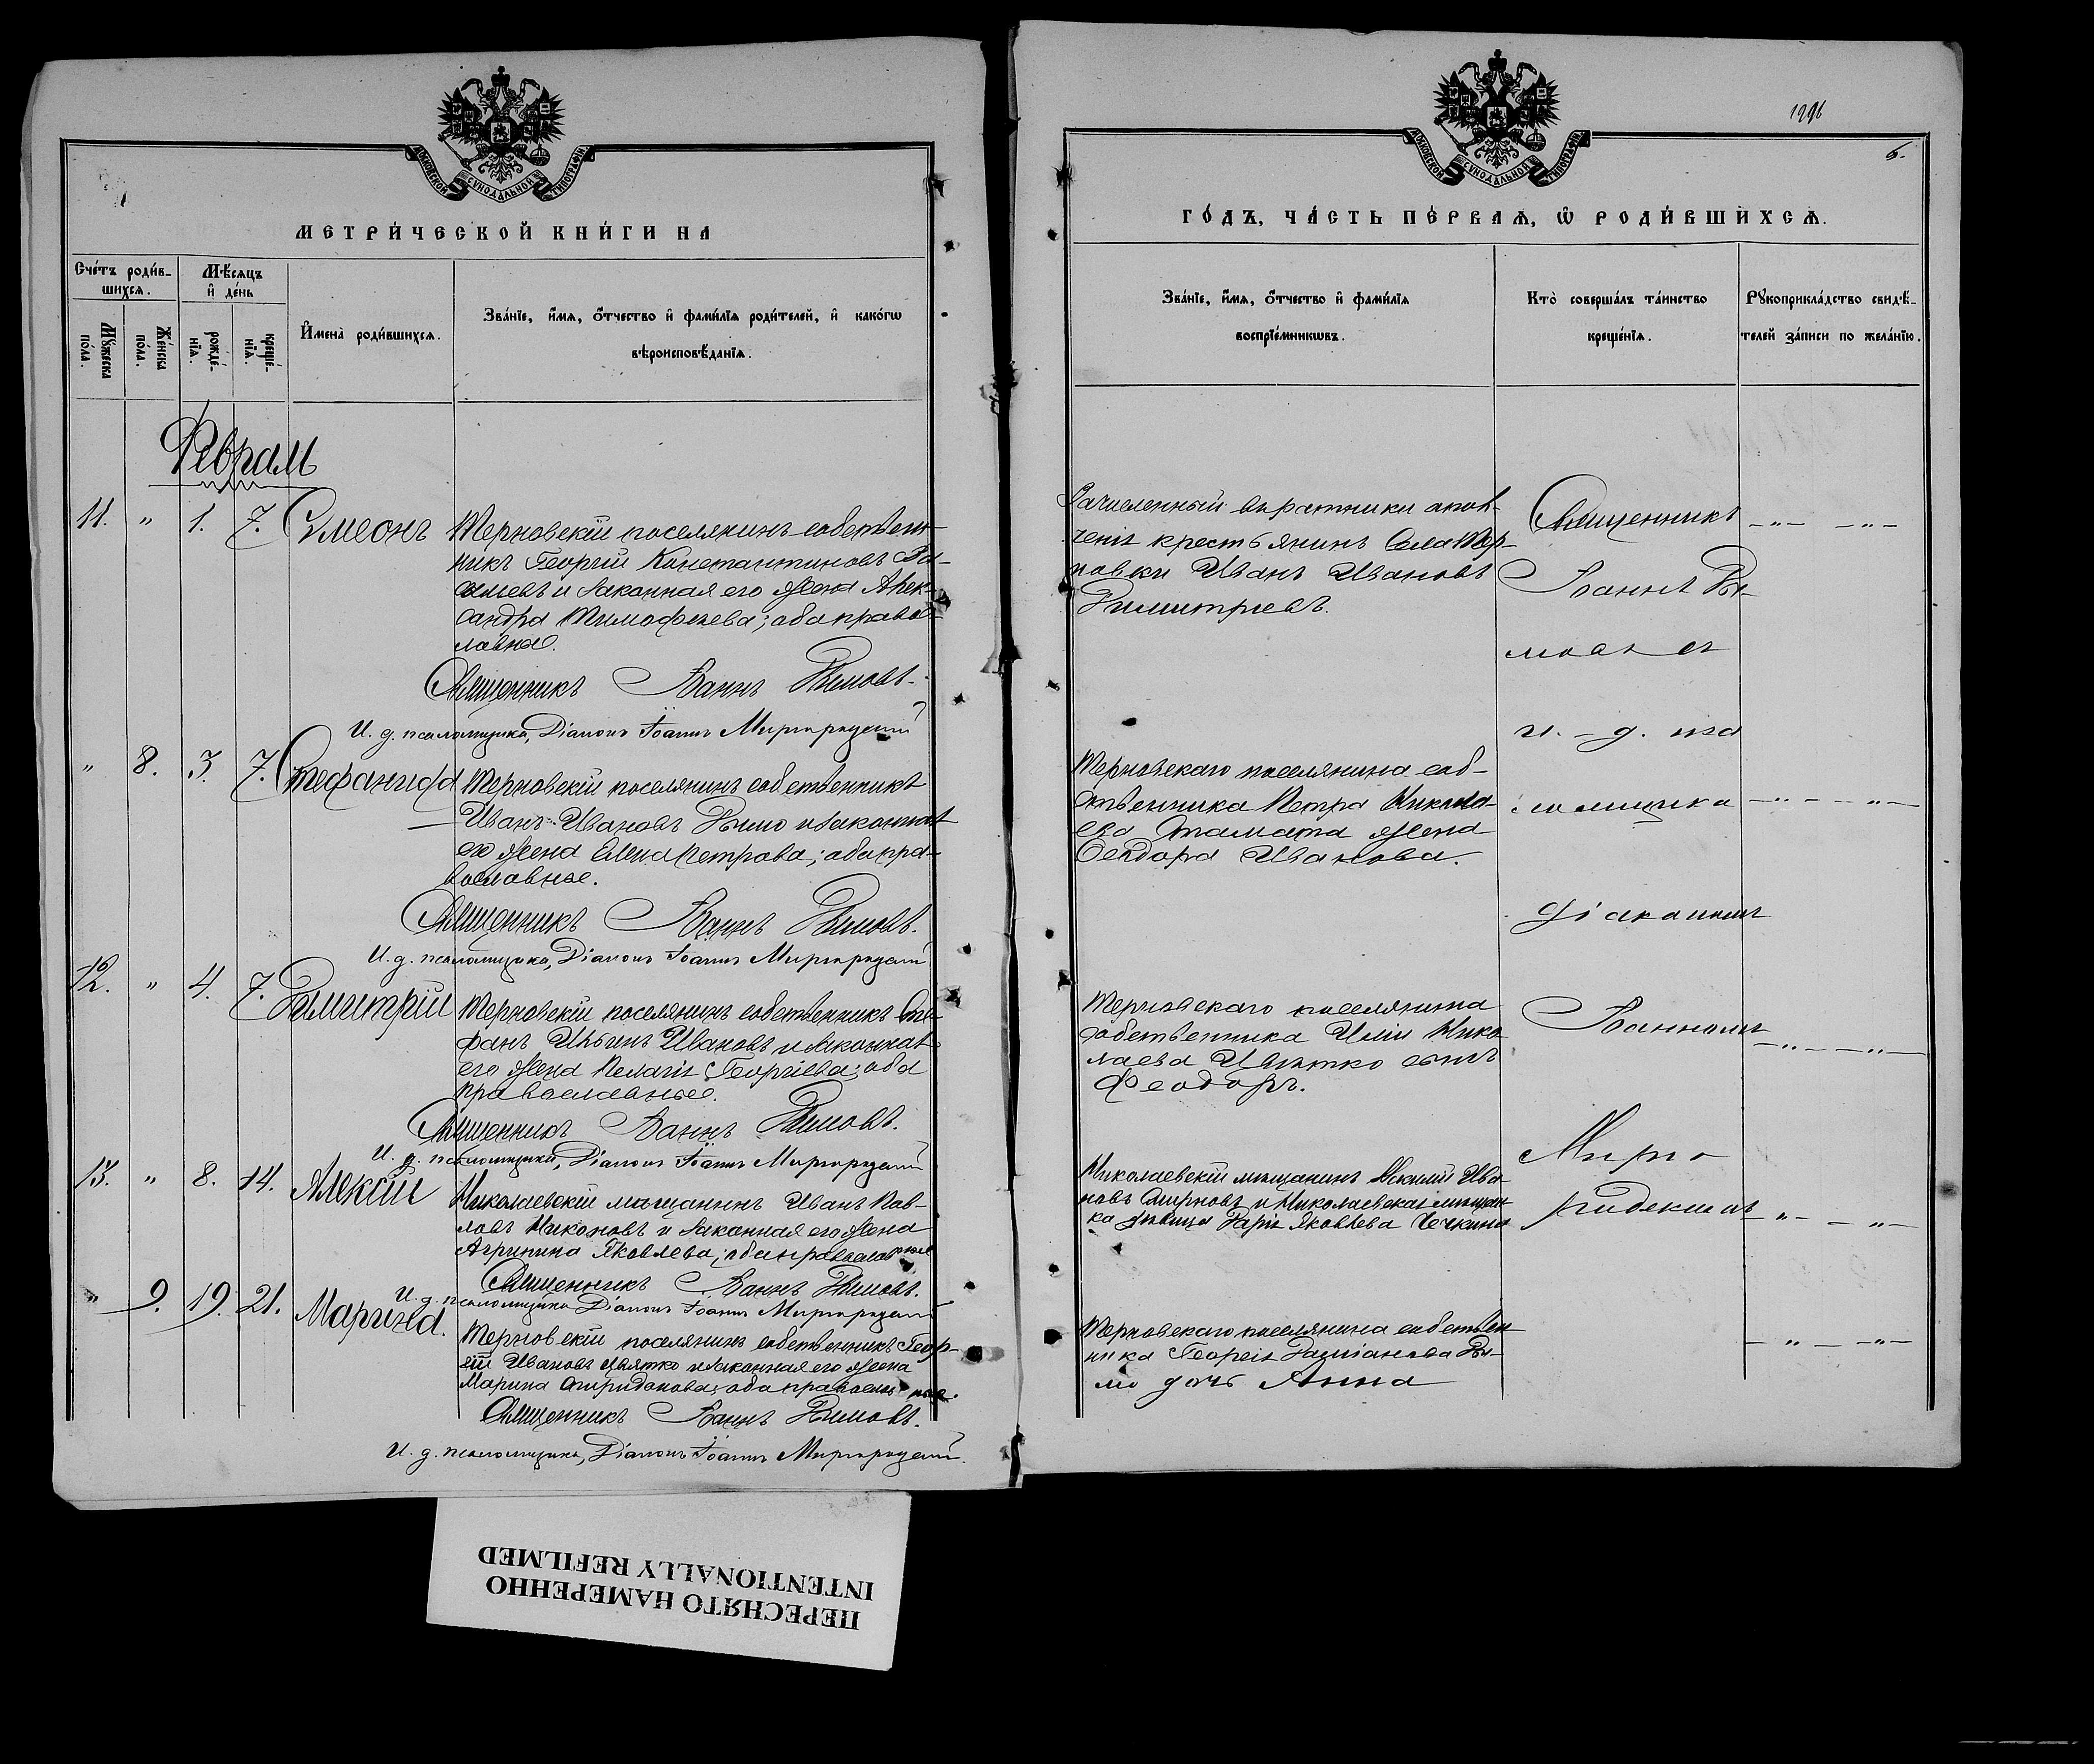 МОСКОВСКОЙ СУНОДАЛЬНОЙ ТИПОГРАФІИ
МЕТРИ́ЧЕСКОЙ КНИ́ГИ НА
Сче́тъ роди́в-
шихсѧ.
Мѣ́сѧцъ
и҆ де́нь
Мꙋ́жеска
по́ла.
Же́нска
по́ла.
рожде́-
нїѧ.
креще́-
нїѧ.
И҆мена̀ роди́вшихсѧ.
Зва́нїе, и҆́мѧ, ѻ҆́тчество и҆ фами́лїѧ роди́телей, и҆ како́гѡ
вѣроисповѣ́данїѧ.
Февраль
11. " 1. 7. Сѵмеонъ
Терновскій поселянинъ собствен-
никъ Георгій Константиновъ Ва-
сильевъ и законная его жена Алек-
сандра Тимофеева; оба правос-
лавные.
Священникъ Іоаннъ Дымовъ.
И. д. псаломщика, Діаконъ Іоаннъ Миргородскій
" 8. 3. 7. Стефанида
Терновскій поселянинъ собственникъ
Иванъ Ивановъ Дымо и законная
его жена Елена Петрова; оба пра-
вославные.
Священникъ Іоаннъ Дымовъ.
И. д. псаломщика, Діаконъ Іоаннъ Миргородскій
12. " 4. 7. Димитрій
Терновскій поселянинъ собственникъ Сте-
фанъ Ивановъ и законная
его жена Пелагія Георгіева; оба
православные.
Священникъ Іоаннъ Дымовъ.
И. д. псаломщика, Діаконъ Іоаннъ Миргородскій
13. " 8. 14. Алексій
Николаевскій мещанинъ Иванъ Пав-
ловъ Никоновъ и законная его жена
Агрипина Яковлева; оба православные
Священникъ Іоаннъ Дымовъ.
И. д. псаломщика Діаконъ Іоаннъ Миргородскій
" 9. 19. 21. Марина.
Терновскій поселянинъ собственникъ Геор-
гій Ивановъ Цвятко и законная его жена
Марина Спиридонова; оба православные.
Священникъ Іоаннъ Дымовъ.
И. д. псаломщика, Діаконъ Іоаннъ Миргородскій.
6.
МОСКОВСКОЙ СУНОДАЛЬНОЙ ТИПОГРАФІИ
ГО́ДЪ, ЧА́СТЬ ПЕ́РВАѦ, Ѡ҆ РОДИ́ВШИХСѦ.
Зва́нїе, и҆́мѧ, ѻ҆́тчество и҆ фами́лїѧ
воспрїе́мникѡвъ.
Кто̀ соверша́лъ та́инство
креще́нїѧ.
Рꙋкоприкла́дство свидѣ́-
телей за́писи по жела́нїю.
Зачисленный въ ратники опол-
ченія крестьянинъ Села Тер-
новки Иванъ Ивановъ
Димитріевъ.
Священникъ
Іоаннъ Ды-
мовъ съ
и. д. пса
Терновскаго поселянина соб-
ственника Петра Никола-
ева Стамата жена
Феодора Иванова.
ломщика
діакономъ
Терновскаго поселянина
собственника Иліи Нико
лаева Цвятко сынъ
Феодоръ.
Іоанномъ
Мирго
Николаевскій мещанинъ Ива-
новъ Смирновъ и Николаевская мещан-
ка девица Дарія Яковлева Чечкина
родскимъ
Терновскаго поселянина собствен
ника Георгія Даміанова Ды-
мо дочь Анна
ПЕРЕСНЯТО НАМЕРЕННО
INTENTIONALLY REFILMED